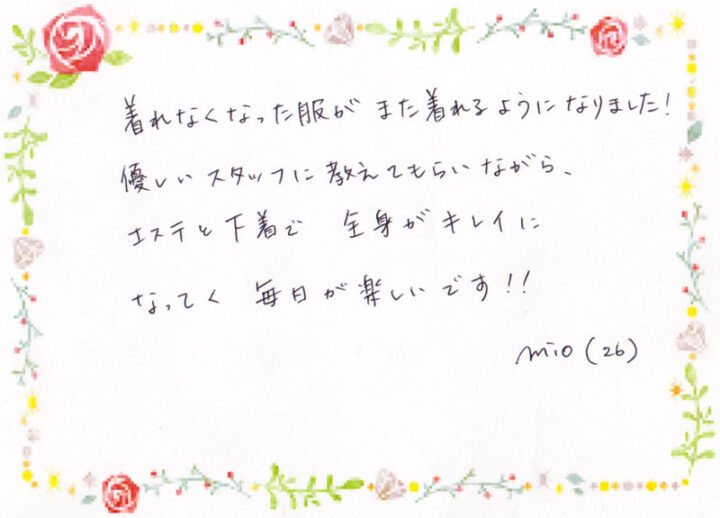 着れなくなった服が また着れるようになりました!
優しいスタッフに教えてもらいながら、
エステと下着で 全身がキレイに
なってく 毎日が楽しいです!!
mio (26)